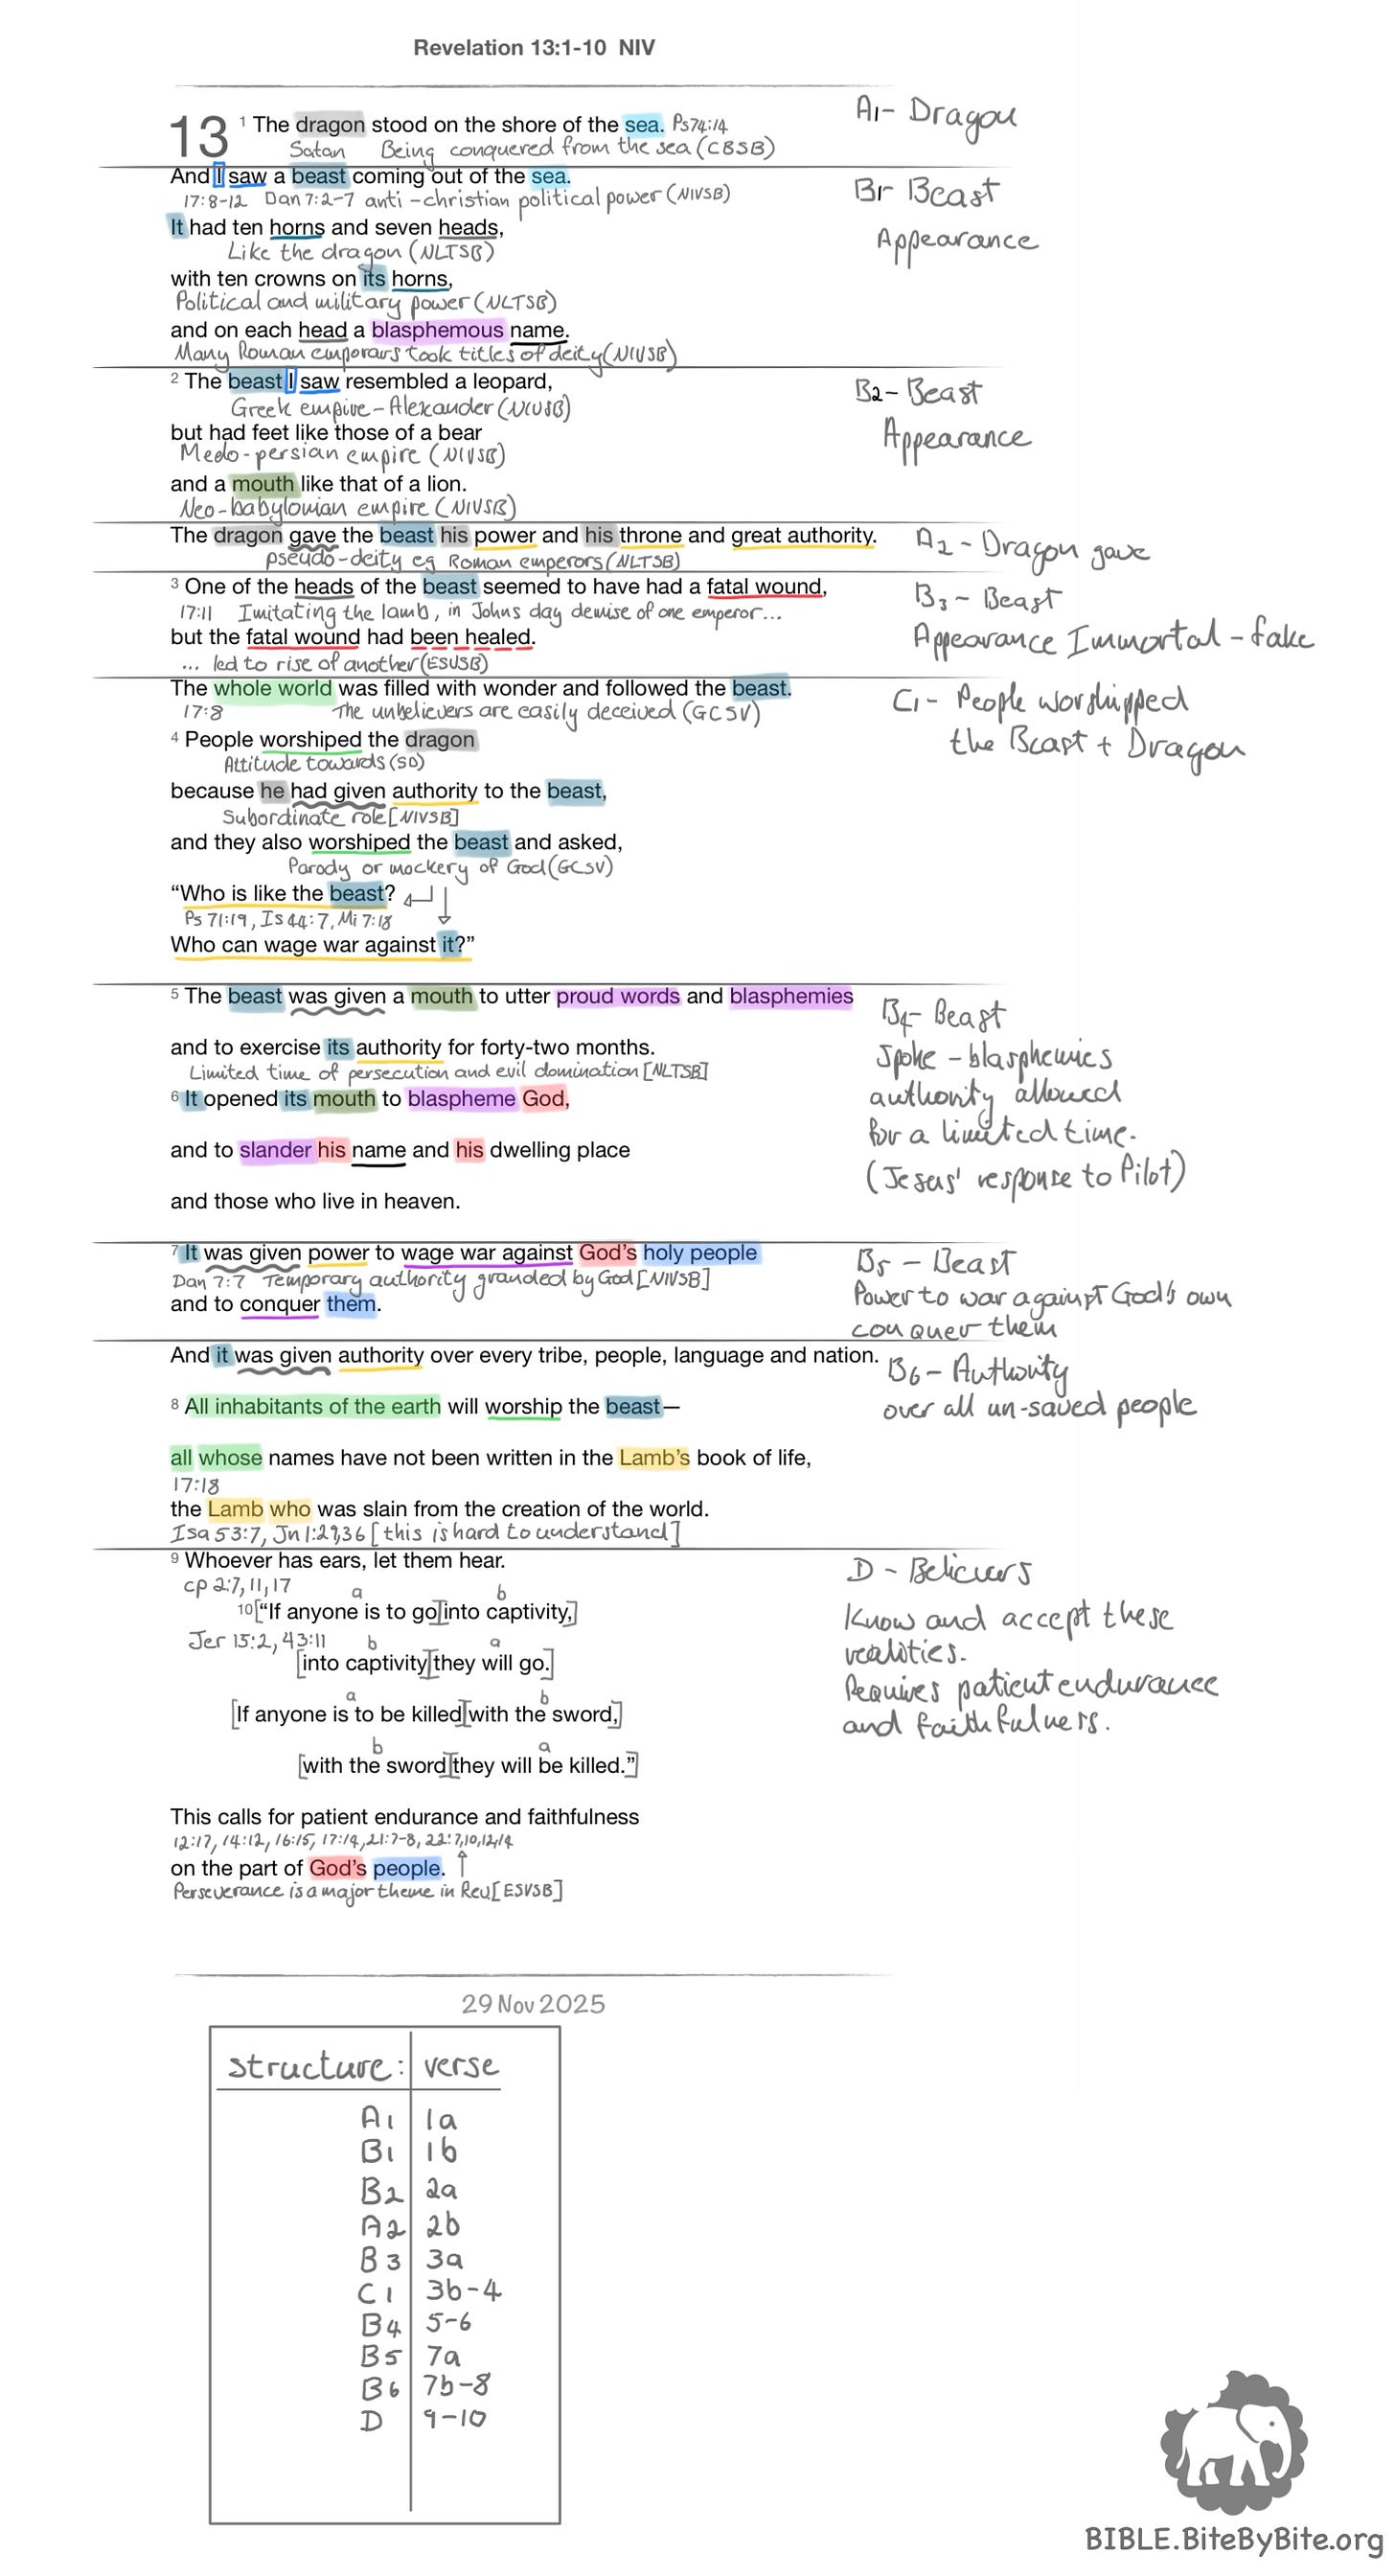 Revelation 13:1-10 NIV
13 1 The dragon stood on the shore of the sea. Ps 74:14
A1- Dragon
Satan Being conquered from the sea (CBSB)
And I saw a beast coming out of the sea.
B1- Beast
17:8-12 Dan 7:2-7 anti-christian political power (NIVSB)
It had ten horns and seven heads,
Appearance
Like the dragon (NLTSB)
with ten crowns on its horns,
Political and military power (NLTSB)
and on each head a blasphemous name.
Many Roman emporars took titles of deity (NIVSB)
2 The beast I saw resembled a leopard,
B2- Beast
Greek empire - Alexander (NIVSB)
but had feet like those of a bear
Appearance
Medo-persian empire (NIVSB)
and a mouth like that of a lion.
Neo-babylonian empire (NIVSB)
The dragon gave the beast his power and his throne and great authority.
A2 - Dragon gave
pseudo-deity eg Roman emperors (NLTSB)
3 One of the heads of the beast seemed to have had a fatal wound,
B3 - Beast
17:11 Imitating the lamb, in Johns day demise of one emperor...
but the fatal wound had been healed.
Appearance Immortal - fake
... led to rise of another (ESVSB)
The whole world was filled with wonder and followed the beast.
C1 - People worshipped
17:8 The unbelievers are easily deceived (GCSV)
4 People worshiped the dragon
the Beast + Dragon
Attitude towards (SD)
because he had given authority to the beast,
Subordinate role [NIVSB]
and they also worshiped the beast and asked,
Parody or mockery of God (GCSV)
“Who is like the beast?
Ps 71:19, Is 44:7, Mi 7:18
Who can wage war against it?”
5 The beast was given a mouth to utter proud words and blasphemies
B4- Beast
and to exercise its authority for forty-two months.
Spoke - blasphemies
Limited time of persecution and evil domination [NLTSB]
6 It opened its mouth to blaspheme God,
authority allowed
for a limited time.
and to slander his name and his dwelling place
(Jesus' response to Pilot)
and those who live in heaven.
7 It was given power to wage war against God’s holy people
B5 - Beast
Dan 7:7 Temporary authority granded by God [NIVSB]
Power to war against God's own
and to conquer them.
conquer them
And it was given authority over every tribe, people, language and nation.
B6 - Authority
8 All inhabitants of the earth will worship the beast—
over all un-saved people
all whose names have not been written in the Lamb’s book of life,
17:18
the Lamb who was slain from the creation of the world.
Isa 53:7, Jn 1:29,36 [this is hard to understand]
9 Whoever has ears, let them hear.
D - Believers
cp 2:7, 11, 17
a b
10 [“If anyone is to go][into captivity,]
Know and accept these
Jer 15:2, 43:11 b a
realities.
[into captivity][they will go.]
Requires patient endurance
a b
[If anyone is to be killed][with the sword,]
and faithfulness.
b a
[with the sword][they will be killed.”]
This calls for patient endurance and faithfulness
12:17, 14:12, 16:15, 17:14, 21:7-8, 22:7,10,12,14
on the part of God’s people.
Perseverance is a major theme in Rev [ESVSB]
29 Nov 2025
structure: verse
A1 1a
B1 1b
B2 2a
A2 2b
B3 3a
C1 3b-4
B4 5-6
B5 7a
B6 7b-8
D 9-10
BIBLE.BiteByBite.org